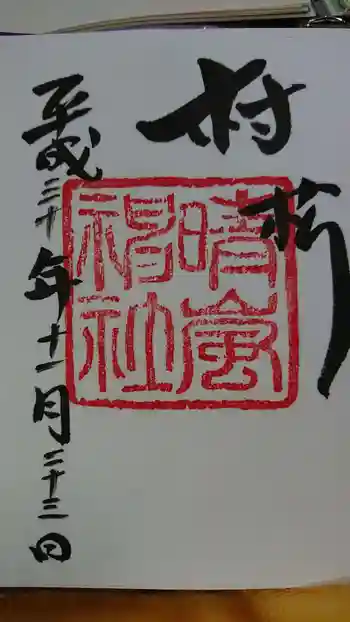 奉拝
晴嵐
神社
平成三十年十一月二十三日